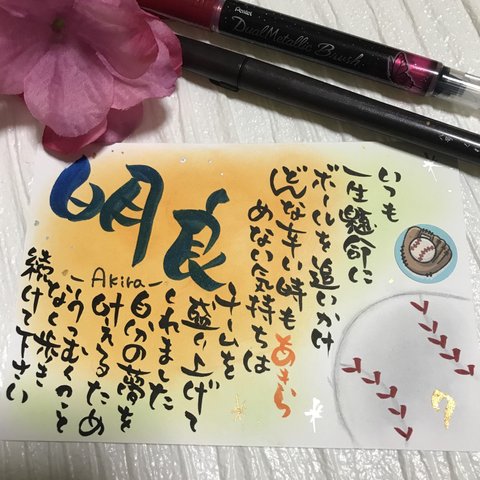 Pentel
DualMetallic Brush
いつも
一生懸命に
ボールを追いかけ
どんな辛い時もあきら
めない気持ちは
チームを
盛り上げて
くれました
自分の夢を
叶えるため
うつむくこと
なく歩き
続けて下さい
明良
-Akira-
7